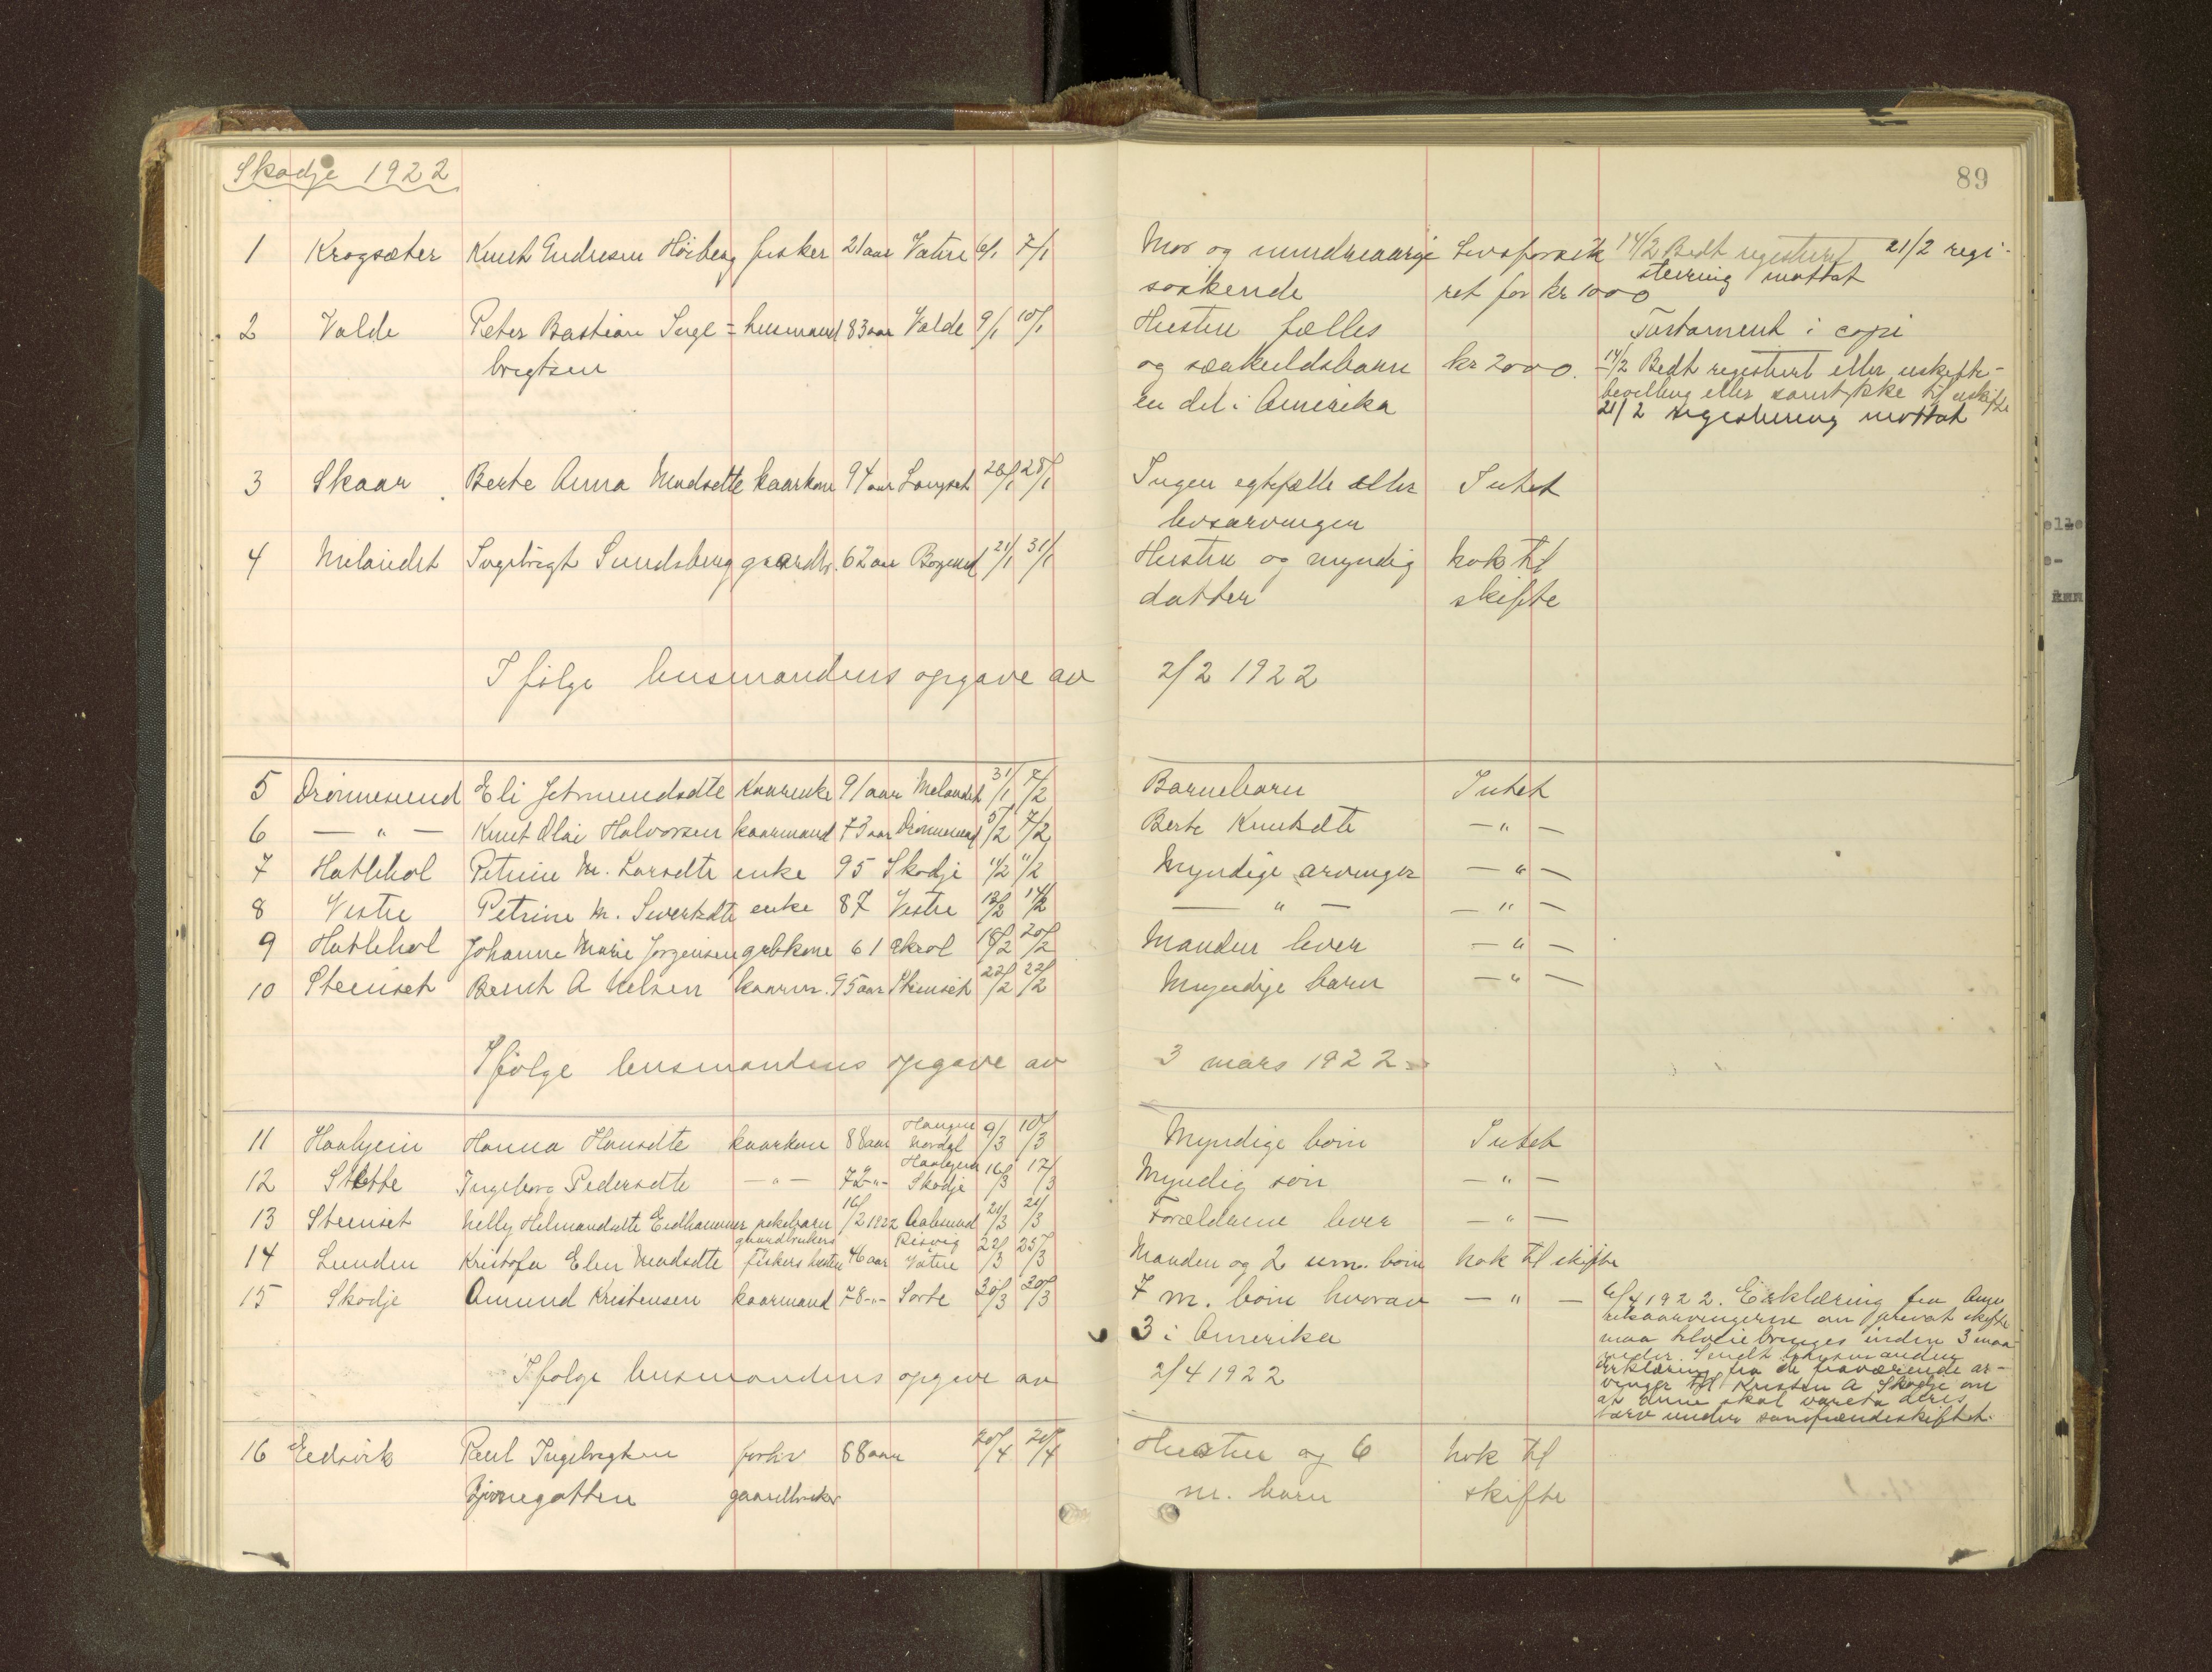 Skodje 1922
89
1 Krogsæter Knut Endresen Høiberg fisker 21 aar Vatne 6/1 7/1 Mor og mindreaarige Livsforsik 14/2 Bedt registrert 21/2 regi-
søskende ret for kr 1000 strering mottat
2 Valde Peter Bastian Inge= husmand 83 aar Valde 9/1 10/1 Hustru fælles Testament i copi
brigtsen og særkuldsbarn kr 2000. 14/2 Bedt registrert eller uskifte-
en del i Amerika bevilling eller samtykke til uskifte
21/2 registrering mottat
3 Skaar Berte Anna Madsdtte kaarkone 94 aar Langset 26/1 28/1 Ingen egtefælle eller Intet
livsarvinger
4 Melandet Ingebrigt Sundsberg gaardbr. 62 aar Borgund 21/1 31/1 Hustru og myndig nok til
datter skifte
Ifølge lensmandens opgave av 2/2 1922
5 Drønnesund Eli Jetmundsdte kaarenke 91 aar Melandet 31/1 7/2 Barnebarn Intet
6 — " — Knut Olai Halvorsen kaarmand 73 aar Drønnesund 5/2 7/2 Berte Knutsdte — " —
7 Hatlehol Petrine M. Larsdte enke 95 Skodje 11/2 11/2 Myndige arvinger — " —
8 Vestre Petrine M. Sivertsdte enke 87 Vestre 12/2 14/2 — " — — " —
9 Hatlehol Johanne Marie Jørgensen grbkone 61 18/2 20/2 Manden lever — " —
10 Stenset Bernt A Nelsen kaarm. 95 aar Stenset 22/2 22/2 Myndige barn — " —
Ifølge lensmandens opgave av 3 mars 1922
11 Haabjein Hanna Hansdte kaarkone 88 aar Norddal 9/3 10/3 Myndige born Intet
12 Stette Ingeborg Pedersdte — " — 72 -"- Haabjein Skodje 16/3 17/3 Myndig søn — " —
13 Stenset Nelly Helmandsdte Eidhammer pikebarn 16/2 1922 Aalesund 21/3 21/3 Forældrene lever — " —
14 Lunden Kristofa Elen Madsdtte gaardbrukers fiskers hustru 46 aar Risvig Vatne 22/3 25/3 Manden og 2 um. born nok til skifte
15 Skodje Amund Kristensen kaarmand 78 -"- Sorte 30/3 30/3 7 m. born hvorav — " — 6/4 1922. Erklæring fra Ame
3 i Amerika rikaarvingerne om privat skifte
maa tilveiebringes inden 3 maa
neder. Sendt lensmanden
Ifølge lensmandens opgave av 2/4 1922 erklæring fra de fraværende ar-
vinger til Kristen A Skodje om
at denne skal vareta deres
tarv under samfrændeskiftet.
16 Eidsvik Paul Ingebrigtsen forhv 88 aar 20/4 20/4 Hustru og 6 nok til
gaardbruker m. barn skifte